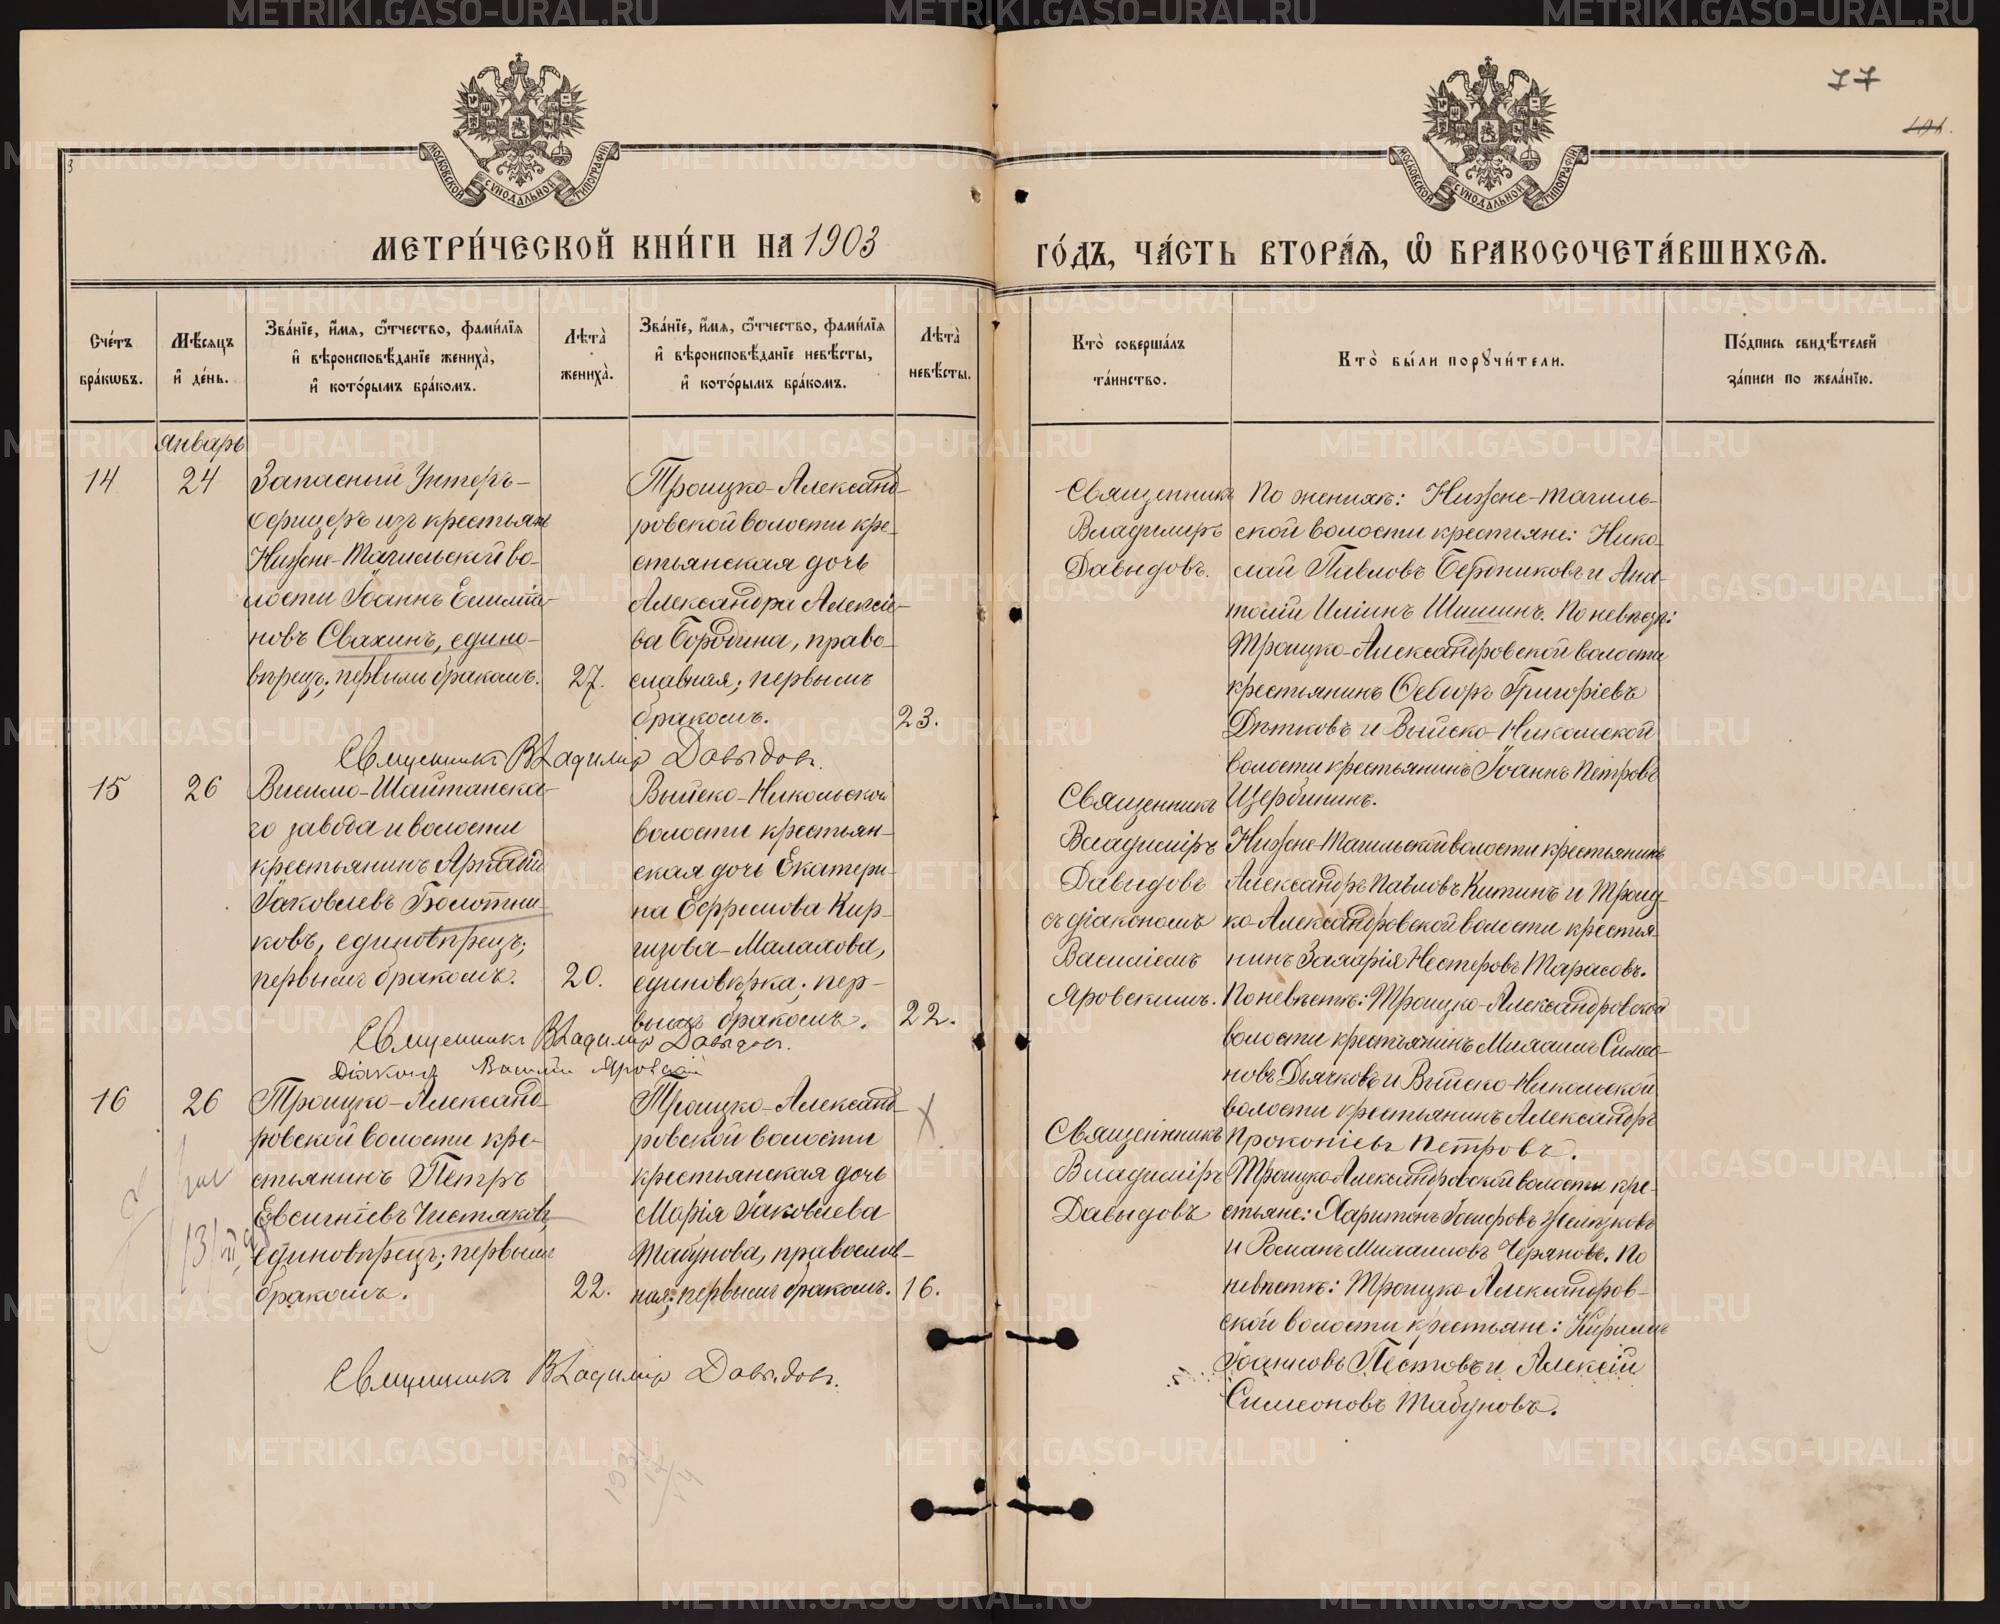 77
101.
МОСКОВСКОЙ СУНОДАЛЬНОЙ ТИПОГРАФІИ
МОСКОВСКОЙ СУНОДАЛЬНОЙ ТИПОГРАФІИ
МЕТРИ́ЧЕСКОЙ КНИ́ГИ НА 1903
ГО́ДЪ, ЧА́СТЬ ВТОРА́Ѧ, Ѡ҆ БРАКОСОЧЕТА́ВШИХСѦ.
Сче́тъ
бра́кωвъ.
Мѣ́сѧцъ
и҆ де́нь.
Зва́нїе, и҆́мѧ, ѻ҆́тчество, фами́лїѧ
и҆ вѣроисповѣ́данїе жениха̀,
и҆ кото́рымъ бра́комъ.
Лѣта̀
жениха̀.
Зва́нїе, и҆́мѧ, ѻ҆́тчество, фами́лїѧ
и҆ вѣроисповѣ́данїе невѣ́сты,
и҆ кото́рымъ бра́комъ.
Лѣта̀
невѣ́сты.
Кто̀ соверша́лъ
та́инство.
Кто̀ бы́ли порꙋчи́тели.
По́дпись свидѣ́телей
за́писи по жела́нїю.
Январь
14
24
Запасный Унтеръ-
Офицеръ изъ крестьянъ
Нижне-Тагильской во-
лости Іоаннъ
новъ Свахинъ, едино-
вѣрецъ; первымъ бракомъ.
27.
Троицко-Александ-
ровской волости кре-
стьянская дочь
Александра Алексіе-
ва Бородина, право-
славная; первымъ
бракомъ.
23.
Священникъ Владиміръ Давыдовъ.
Священникъ
Владиміръ
Давыдовъ.
По женихѣ: Нижне-Тагиль-
ской волости крестьяне: Нико-
лай Павловъ Бердниковъ и Ана-
толій Иліинъ Шишинъ. По невѣстѣ:
Троицко-Александровской волости
крестьянинъ Ѳеодоръ Григоріевъ
Дѣтковъ и Выйско-Никольской
волости крестьянинъ Іоаннъ Петровъ
Щербининъ.
15
26
Висимо-Шайтанска-
го завода и волости
крестьянинъ Аркадій
Іаковлевъ Болотни-
ковъ, единовѣрецъ;
первымъ бракомъ.
20.
Выйско-Никольской
волости крестьян-
ская дочь Екатери-
на Ефремова Кир-
гизова-Малахова,
единовѣрка; пер-
вымъ бракомъ.
22.
Священникъ Владиміръ Давыдовъ.
Діаконъ Василій Яровскій
Священникъ
Владиміръ
Давыдовъ
съ діакономъ
Василіемъ
Яровскимъ.
Нижне-Тагильской волости крестьянинъ
Александръ Павловъ Китинъ и Троиц-
ко-Александровской волости крестья-
нинъ Захарія Нестеровъ Тарасовъ.
По невѣстѣ: Троицко-Александровской
волости крестьянинъ Михаилъ Симео-
новъ Дьячковъ и Выйско-Никольской
волости крестьянинъ Александръ
Прокопіевъ Петровъ.
16
26
Троицко-Александ-
ровской волости кре-
стьянинъ Петръ
Евсигніевъ Чистяковъ,
единовѣрецъ; первымъ
бракомъ.
22.
Троицко-Александ-
ровской волости
крестьянская дочь
Марія Іаковлева
Табунова, православ-
ная; первымъ бракомъ.
16.
Священникъ Владиміръ Давыдовъ.
Священникъ
Владиміръ
Давыдовъ
Троицко-Александровской волости кре-
стьяне: Харитонъ Іосифовъ
и Романъ Михаиловъ По
невѣстѣ: Троицко-Александров-
ской волости крестьяне: Кириллъ
Іоанновъ Пестовъ и Алексій
Симеоновъ Табуновъ.
METRIKI.GASO-URAL.RU